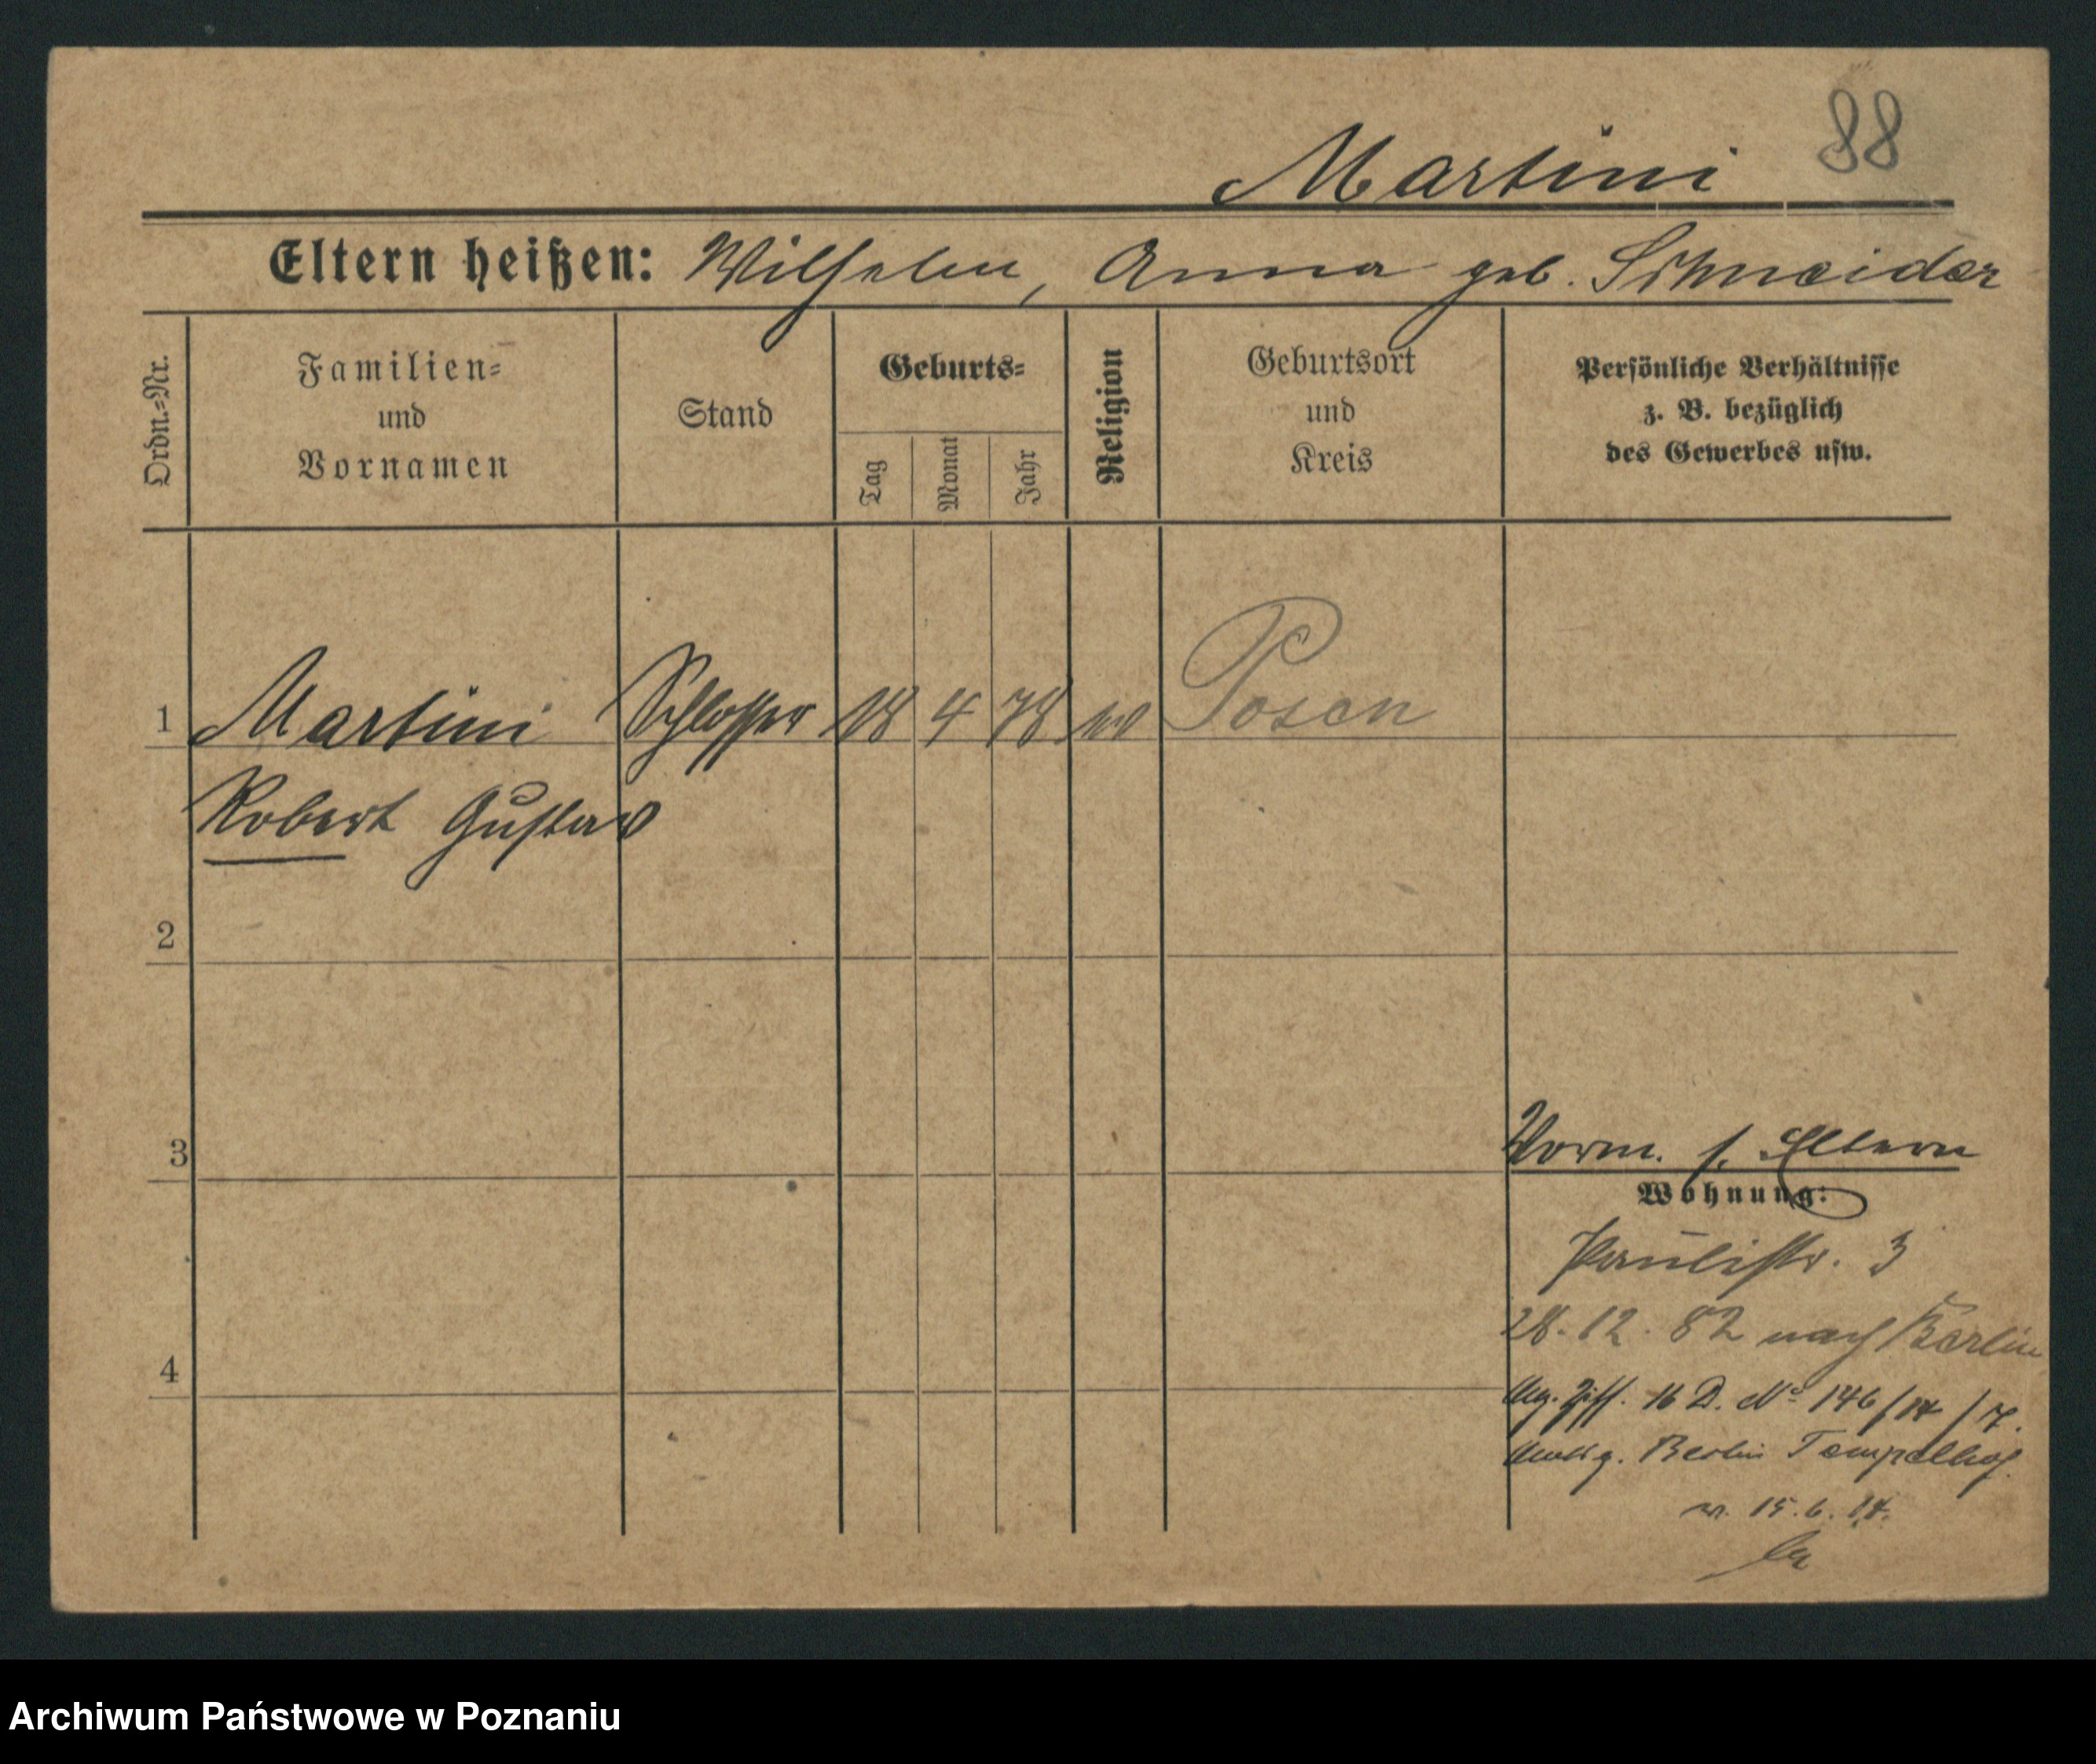 88
Martini
Eltern heißen: Wilhelm, Anna geb. Schneider
Ordn.=Nr.
Familien=
und
Vornamen
Stand
Geburts=
Tag
Monat
Jahr
Religion
Geburtsort
und
Kreis
Persönliche Verhältnisse
z. B. bezüglich
des Gewerbes usw.
1 Martini Schlosser 18 4 78 ev Posen
Robert Gustav
2
3
Vorm. s. Eltern
Wohnung:
Paulistr. 3
28. 12. 82 nach Berlin
4
16 D. No 146/14/7.
Berlin Tempelhof
v. 15. 6. 14.
Archiwum Państwowe w Poznaniu